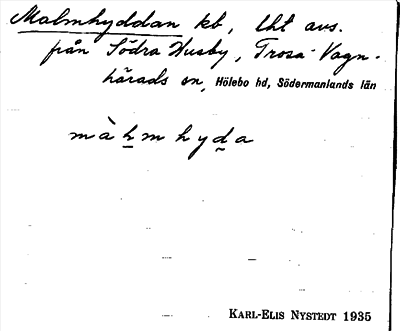 Malmhyddan kb, lht avs.
från Södra Husby, Trosa-Vagn-
härads sn, Hölebo hd, Södermanlands län
màhmhyda
KARL-ELIS NYSTEDT 1935